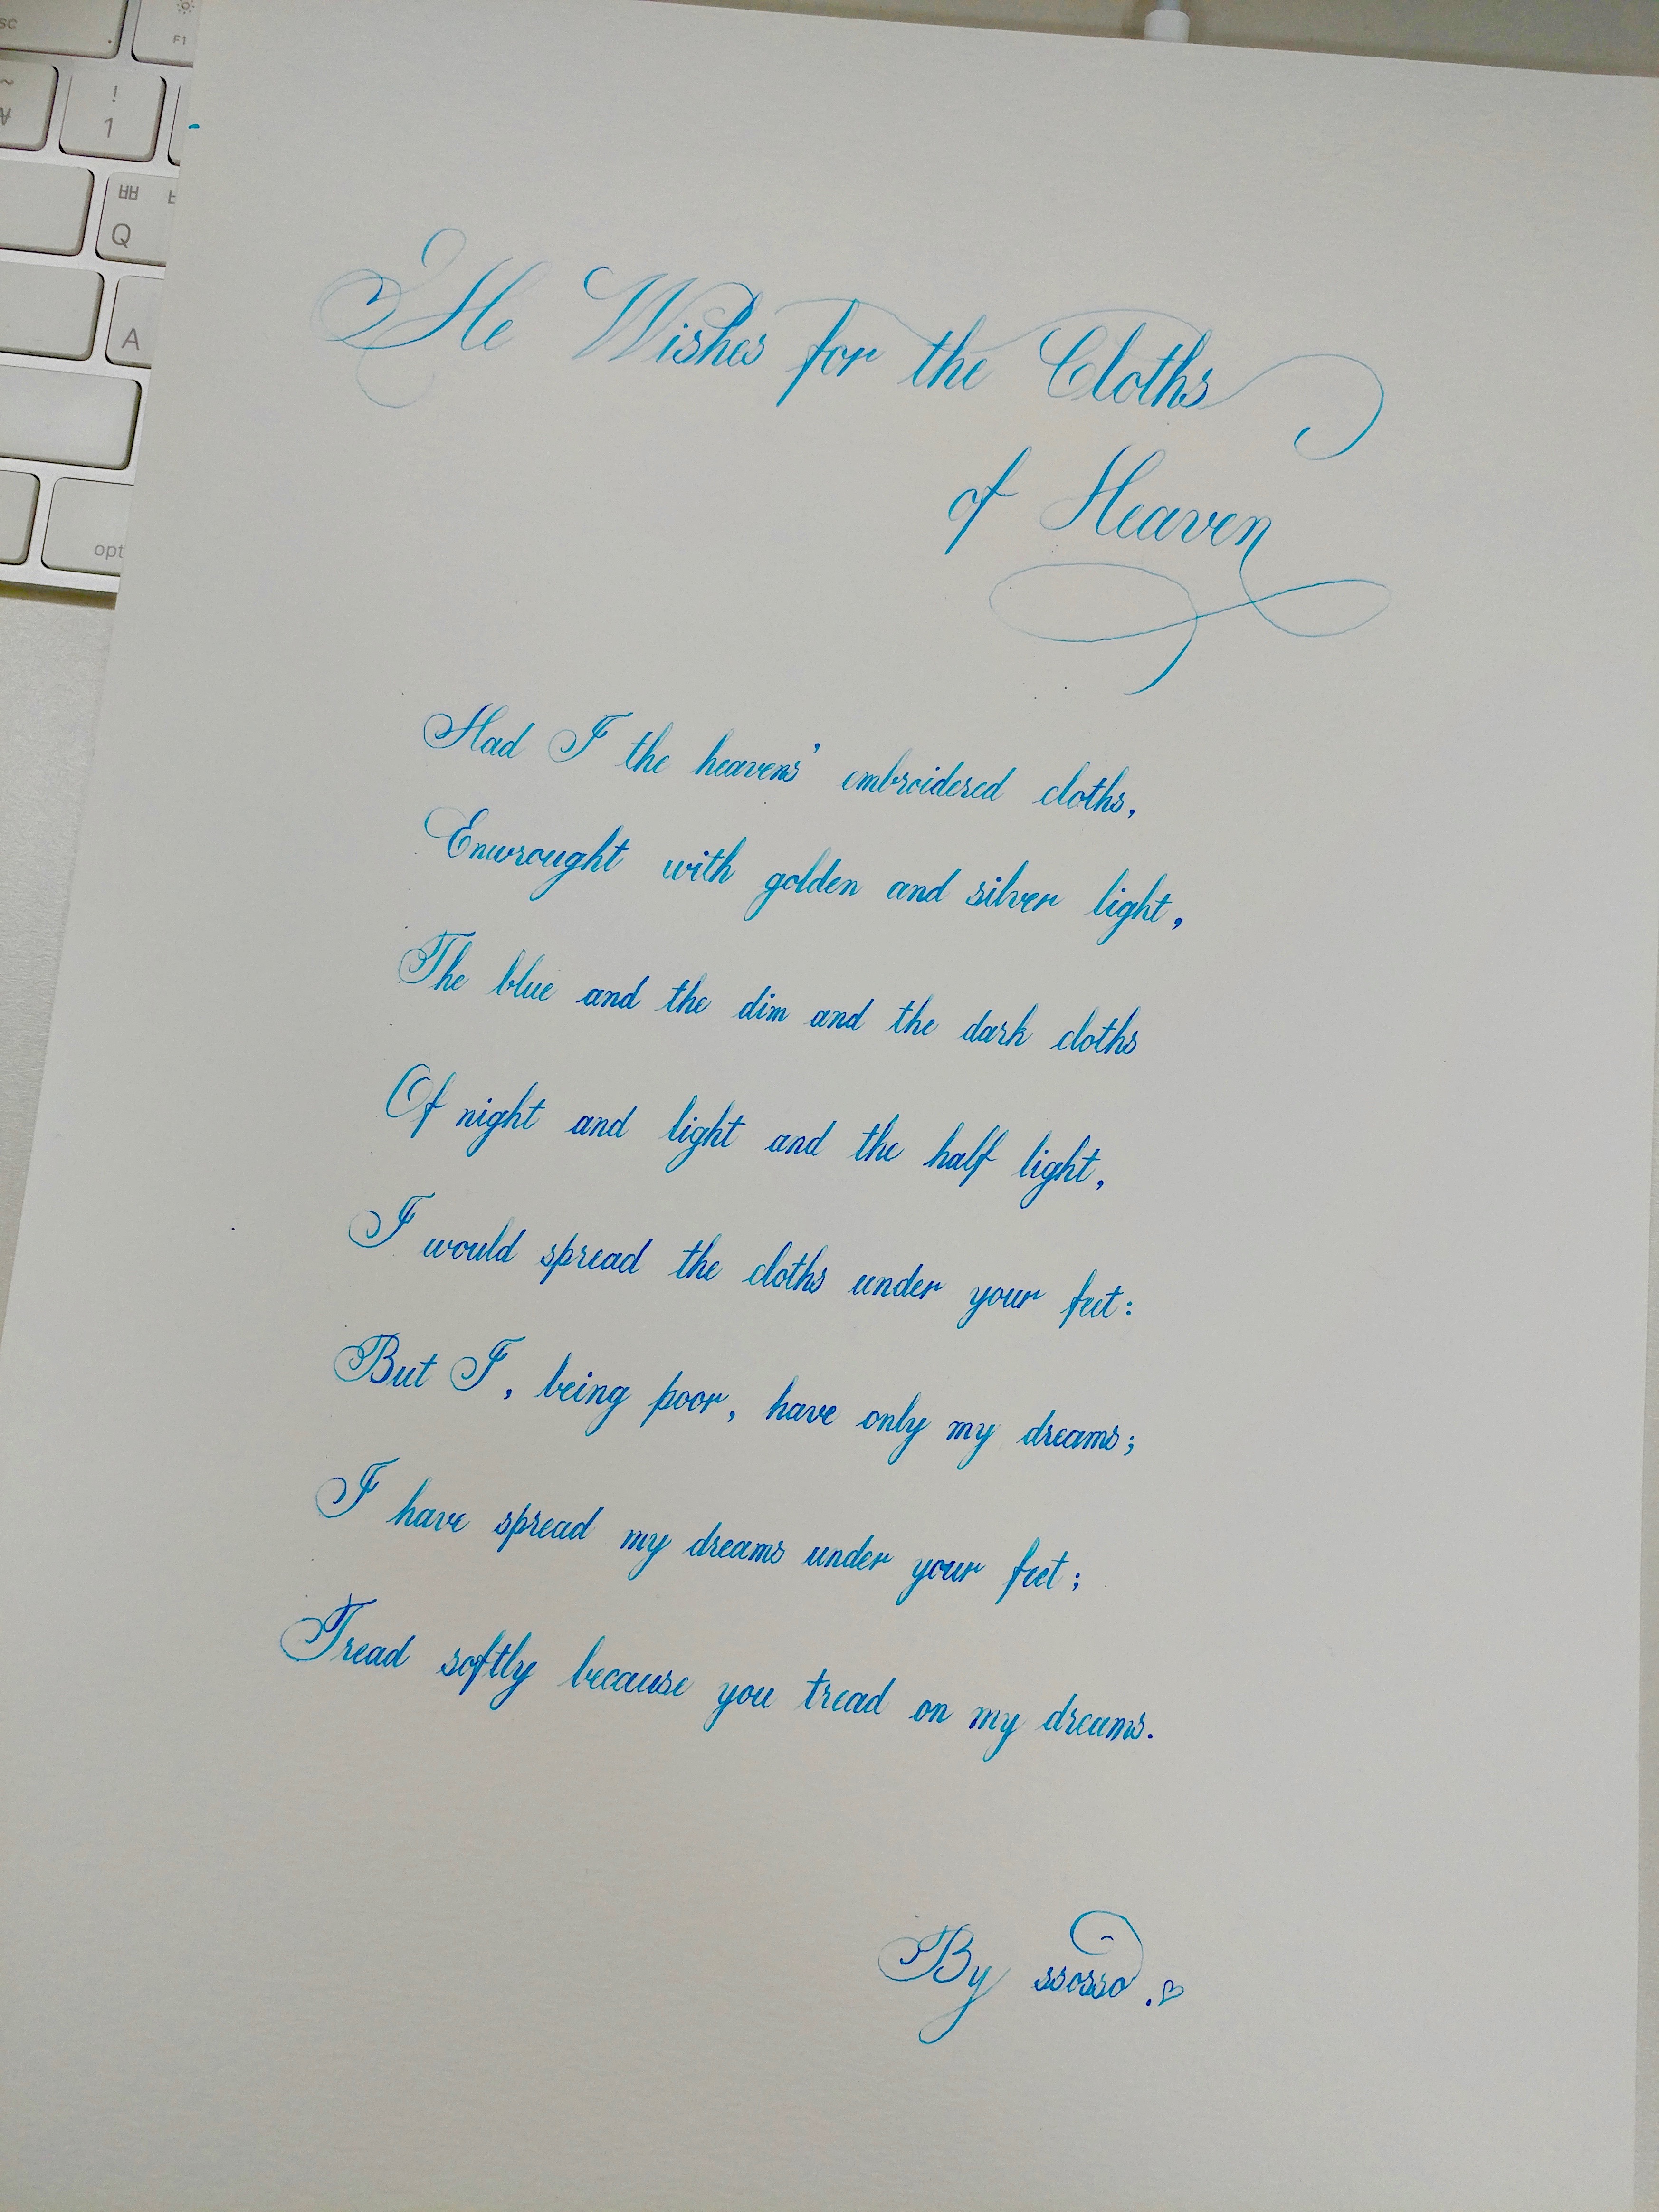 sc
F1
~
₩
!
1
ㅃ
Q
A
opt
He Wishes for the Cloths
of Heaven
Had I the heavens' embroidered cloths,
Enwrought with golden and silver light,
The blue and the dim and the dark cloths
Of night and light and the half light,
I would spread the cloths under your feet:
But I, being poor, have only my dreams;
I have spread my dreams under your feet;
Tread softly because you tread on my dreams.
By ssosso.♡